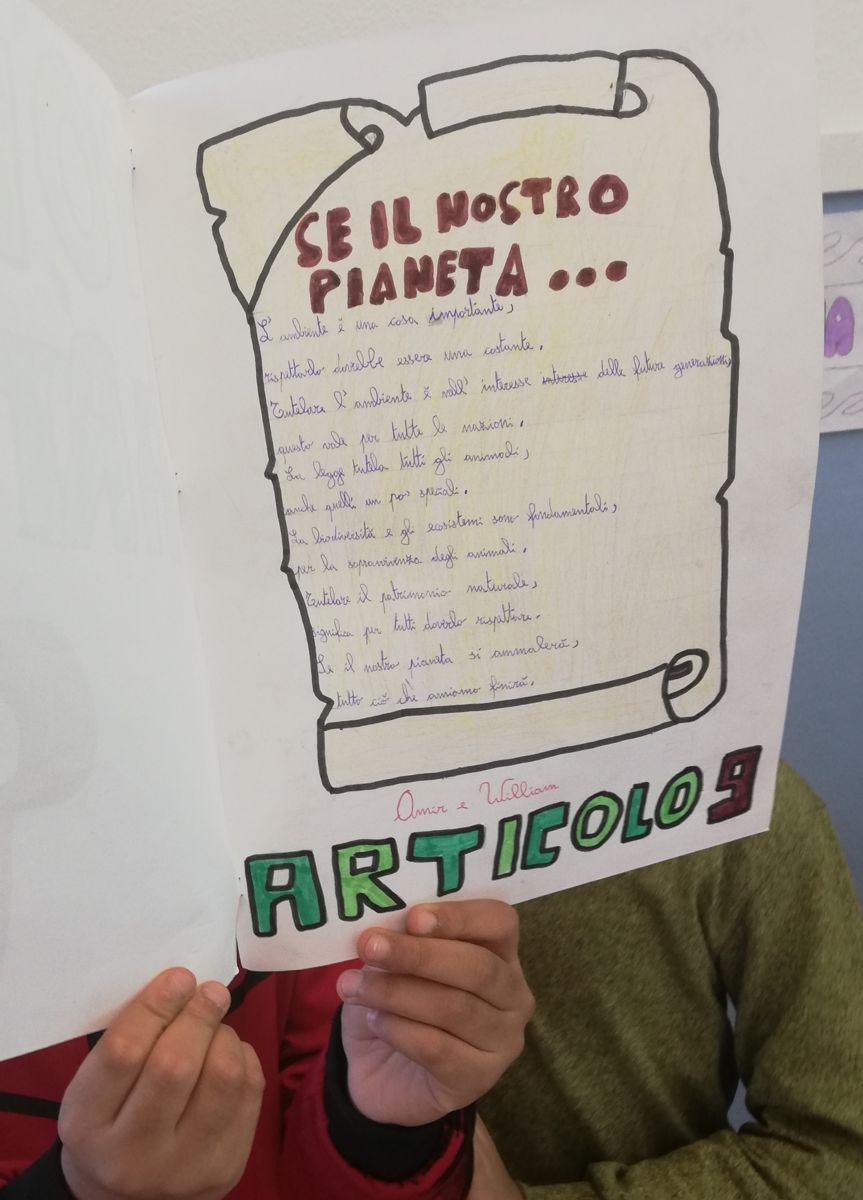 SE IL NOSTRO
PIANETA...
L'ambiente è una cosa importante,
rispettarlo dovrebbe essere una costante.
Tutelare l'ambiente è nell'interesse interesse delle future generazioni,
questo vale per tutte le nazioni.
La legge tutela tutti gli animali,
anche quelli un po' speciali.
La biodiversità e gli ecosistemi sono fondamentali,
per la sopravvivenza degli animali.
Tutelare il patrimonio naturale,
significa per tutti doverlo rispettare.
Se il nostro pianeta si ammalerà,
tutto ciò ch'è amiamo finirà.
Omir e William
ARTICOLO 9